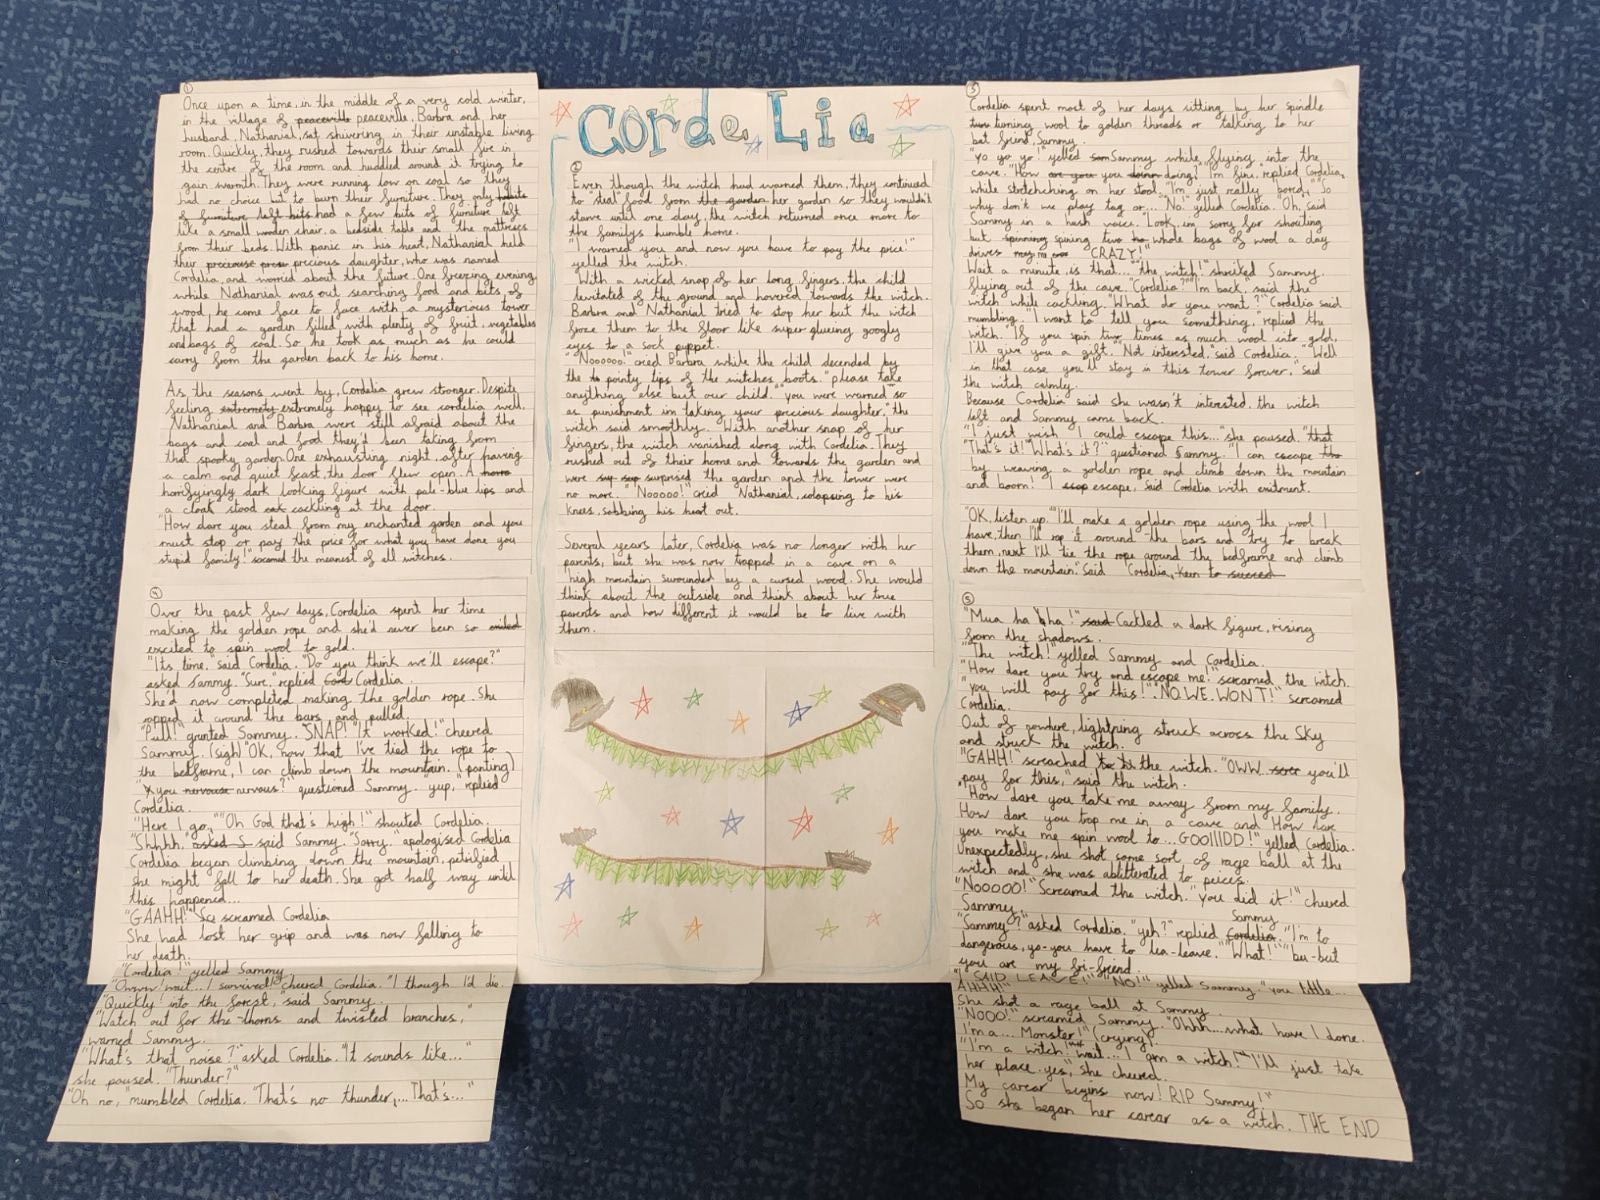 CordeLia
①
Once upon a time, in the middle of a very cold winter,
in the village of peaceville peaceville, Barbra and her
husband, Nathanial, sat shivering in their unstable living
room. Quickly, they rushed towards their small fire in
the centre of the room and huddled around it trying to
gain warmth. They were running low on coal so they
had no choice but to burn their furniture. They only
of furniture left bits had a few bits of furniture left
like a small wooden chair, a bedside table and the mattress
from their beds. With panic in his heart, Nathanial held
their preciouse precious daughter, who was named
Cordelia, and worried about the future. One freezing evening,
while Nathanial was out searching food and bits of
wood, he came face to face with a mysterious tower
that had a garden filled with plenty of fruit, vegetables
and bags of coal. So he took as much as he could
carry from the garden back to his home.
As the seasons went by, Cordelia grew stronger. Despite
feeling extremety extremely happy to see cordelia well,
Nathanial and Barbra were still afraid about the
bags and coal and food they'd been taking from
that spooky garden. One exhausting night, after having
a calm and quiet feast, the door flew open. A horro
horrifyingly dark looking figure with pale-blue lips and
a cloak stood cak cackling at the door.
"How dare you steal from my enchanted garden and you
must stop or pay the price for what you have done you
stupid family!" screamed the meanest of all witches.
②
Even though the witch had warned them, they continued
to "steal" food from the garden her garden so they wouldn't
starve until one day, the witch returned once more to
the familys humble home.
"I warned you and now you have to pay the price!"
yelled the witch.
With a wicked snap of her long fingers, the child
levitated of the ground and hovered towards the witch.
Barbra and Nathanial tried to stop her but the witch
froze them to the floor like super glueing googly
eyes to a sock puppet.
"Noooooo!" cried Barbra while the child decended by
the to pointy tips of the witches boots. "please take
anything else but our child." "you were warned so
as punishment im taking your precious daughter," the
witch said smoothly. With another snap of her
fingers, the witch vanished along with Cordelia. They
rushed out of their home and towards the garden and
were sup sup surprised the garden and the tower were
no more. "Nooooo!" cried Nathanial, colapsing to his
knees, sobbing his heart out.
Several years later, Cordelia was no longer with her
parents, but she was now trapped in a cave on a
high mountain surounded by a cursed wood. She would
think about the outside and think about her true
parents and how different it would be to live with
them.
③
Cordelia spent most of her days sitting by her spindle
turning wool to golden threads or talking to her
bat friend, Sammy.
"Yo yo yo!" yelled sam Sammy while flying into the
cave. "How are you you doinn doing?" "I'm fine, replied Cordelia,
while stretchching on her stool. "I'm just really bored," "So
why don't we play tag or..." "No!" yelled Cordelia. "Oh, said
Sammy in a hush voice. "Look, im sorry for shouting
but spinning spining two whole bags of wool a day
drives me CRAZY!"
Wait a minute, is that... "the, witch!" shreiked Sammy.
flying out of the cave. "Cordelia?" "I'm back, said the
witch while cackling. "What do you want?" Cordelia said
mumbling. "I want to tell you something," replied the
witch. "If you spin two times as much wool into gold,
I'll give you a gift." "Not interested," said Cordelia. "Well
in that case you'll stay in this tower forever," said
the witch calmly.
Because Cordelia said she wasn't interested, the witch
left and Sammy came back.
"I just wish I could escape this..." she paused. "that
"That's it!" "What's it?" questioned Sammy. "I can escape
by weaving a golden rope and climb down the mountain
and boom! I escap escape, said Cordelia with exitment.
"OK, listen up." "I'll make a golden rope using the wool I
have, then I'll rop it around the bars and try to break
them, next I'll tie the rope around the bedframe and climb
down the mountain." Said Cordelia, keen to succeed
④
Over the past few days, Cordelia spent her time
making the golden rope and she'd never been so
excited to spin wool to gold.
"Its time," said Cordelia. "Do you think we'll escape?"
asked Sammy. "Sure," replied Cordelia.
She'd now completed making the golden rope. She
ropped it around the bars and pulled.
"Pull!" grunted Sammy. SNAP! "It worked!" cheered
Sammy. (sigh) "OK, now that I've tied the rope to
the bedframe, I can climb down the mountain. (panting)
"you nervouse nervous?" questioned Sammy. "yup," replied
Cordelia.
"Here I go." "Oh God that's high!" shouted Cordelia.
"Shhhh," asked S said Sammy. "Sorry," apologised Cordelia
Cordelia began climbing down the mountain, petrified
she might fall to her death. She got half way until
this happened...
"GAAHH!" Sc screamed Cordelia
She had lost her grip and was now falling to
her death.
"Cordelia!" yelled Sammy
"Owww wait... I survived!" cheered Cordelia. "I though I'd die.
"Quickly! into the forest," said Sammy.
"Watch out for the thorns and twisted branches,"
warned Sammy.
"What's that noise?" asked Cordelia. "It sounds like..."
she paused. "Thunder?"
"Oh no," mumbled Cordelia. "That's no thunder,...That's..."
⑤
"Mua ha ha!" said Cackled a dark figure, rising
from the shadows.
"The witch!" yelled Sammy and Cordelia.
"How dare you try and escape me!" screamed the witch.
"you will pay for this!" "NO.WE.WON'T!" screamed
Cordelia.
Out of nowhere, lightning struck across the Sky
and struck the witch.
"GAHH!" screached the witch. "OWW you'll
pay for this," said the witch.
"How dare you take me away from my family.
How dare you trap me in a cave and How dare
you make me spin wool to... GOOllIDD!" yelled Cordelia.
Unexpectedly, she shot some sort of rage ball at the
witch and she was abliterated to peices.
"NOOOOO!" Screamed the witch. "you did it!" cheered
Sammy.
"Sammy?" asked Cordelia. "yeh?" replied Cordelia Sammy. "I'm to
dangerous, yo-you have to lea-leave." "What!" "bu-but
you are my fri-friend.
"I SAID LEAVE!" "NO!" yelled Sammy. "you little...
AHHH!"
She shot a rage ball at Sammy.
"NOOO!" screamed Sammy. "Ohhh....what have I done.
I'm a... Monster!" (crying)
"I'm a witch! wait... I am a witch! I'll just take
her place. yes, she cheered.
My carear begins now! RIP Sammy!"
So she began her carear as a witch. THE END